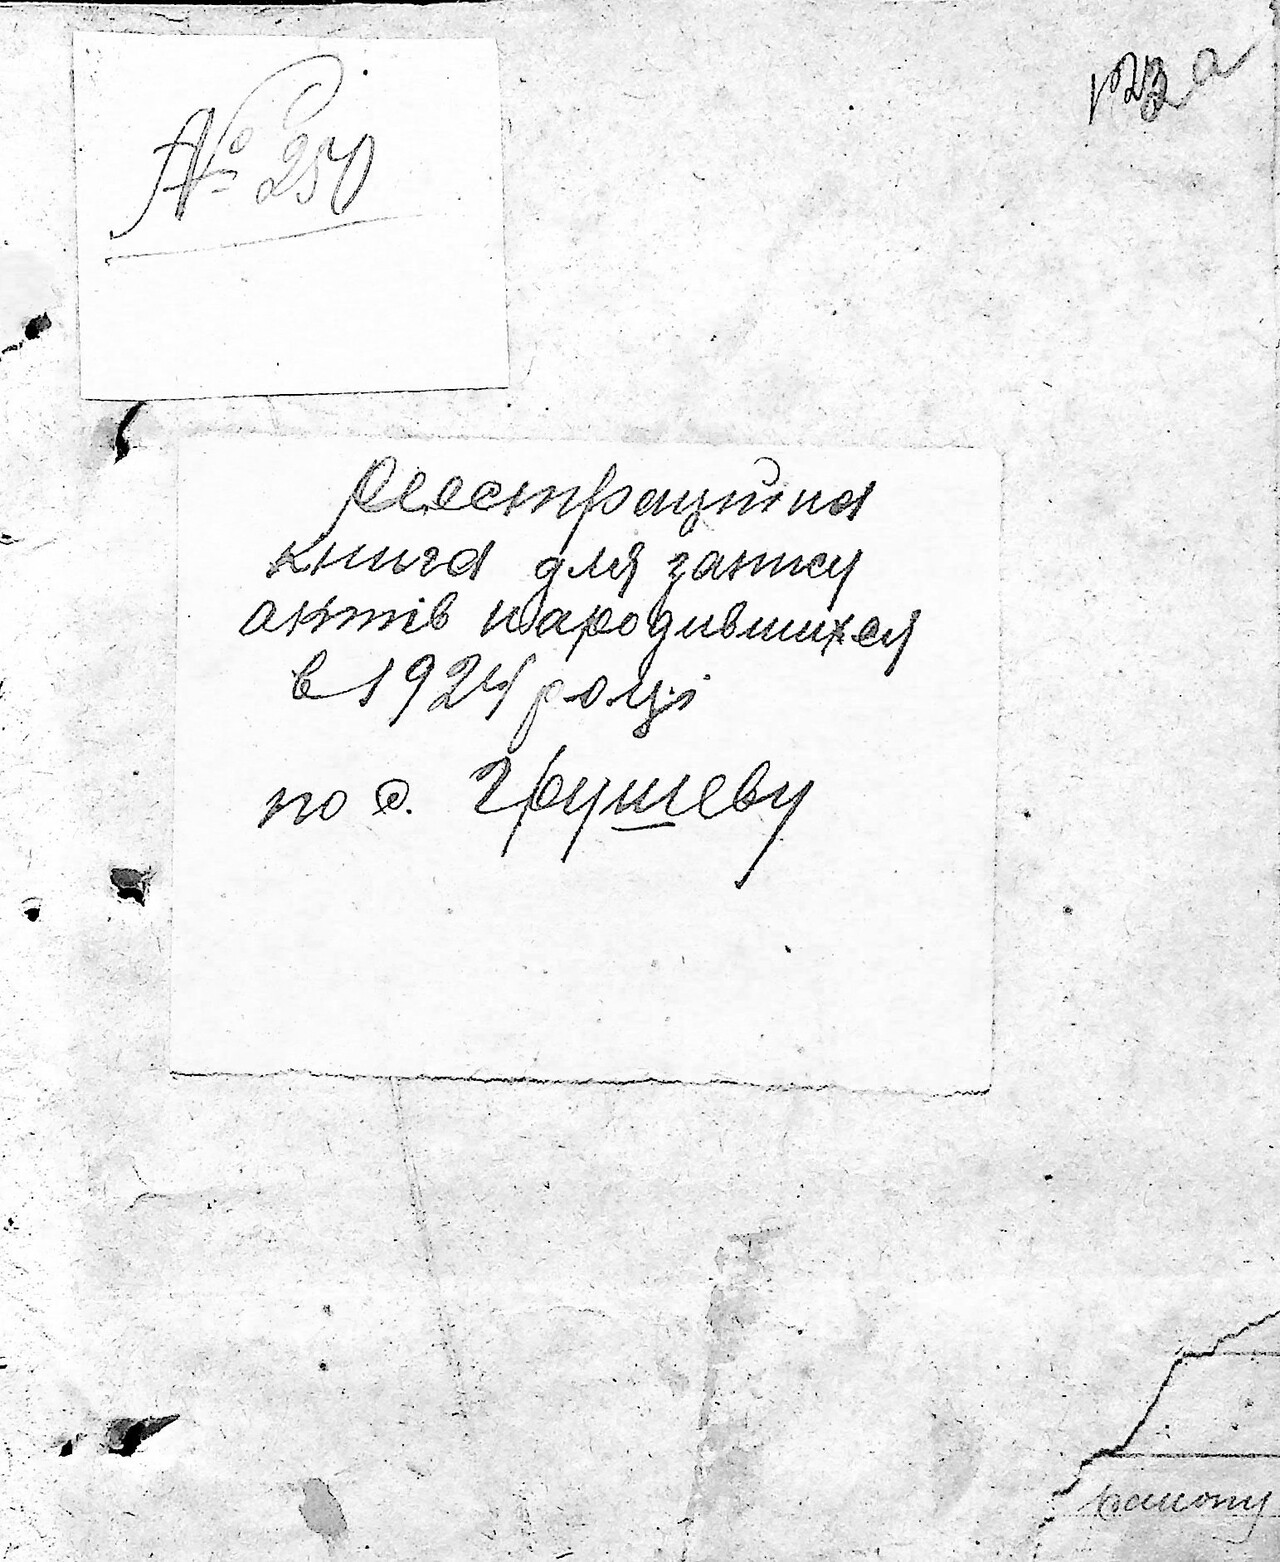 № 250
Реєстраційна
книга для запису
актів народившихся
в 1924 році
по с. Грушеву